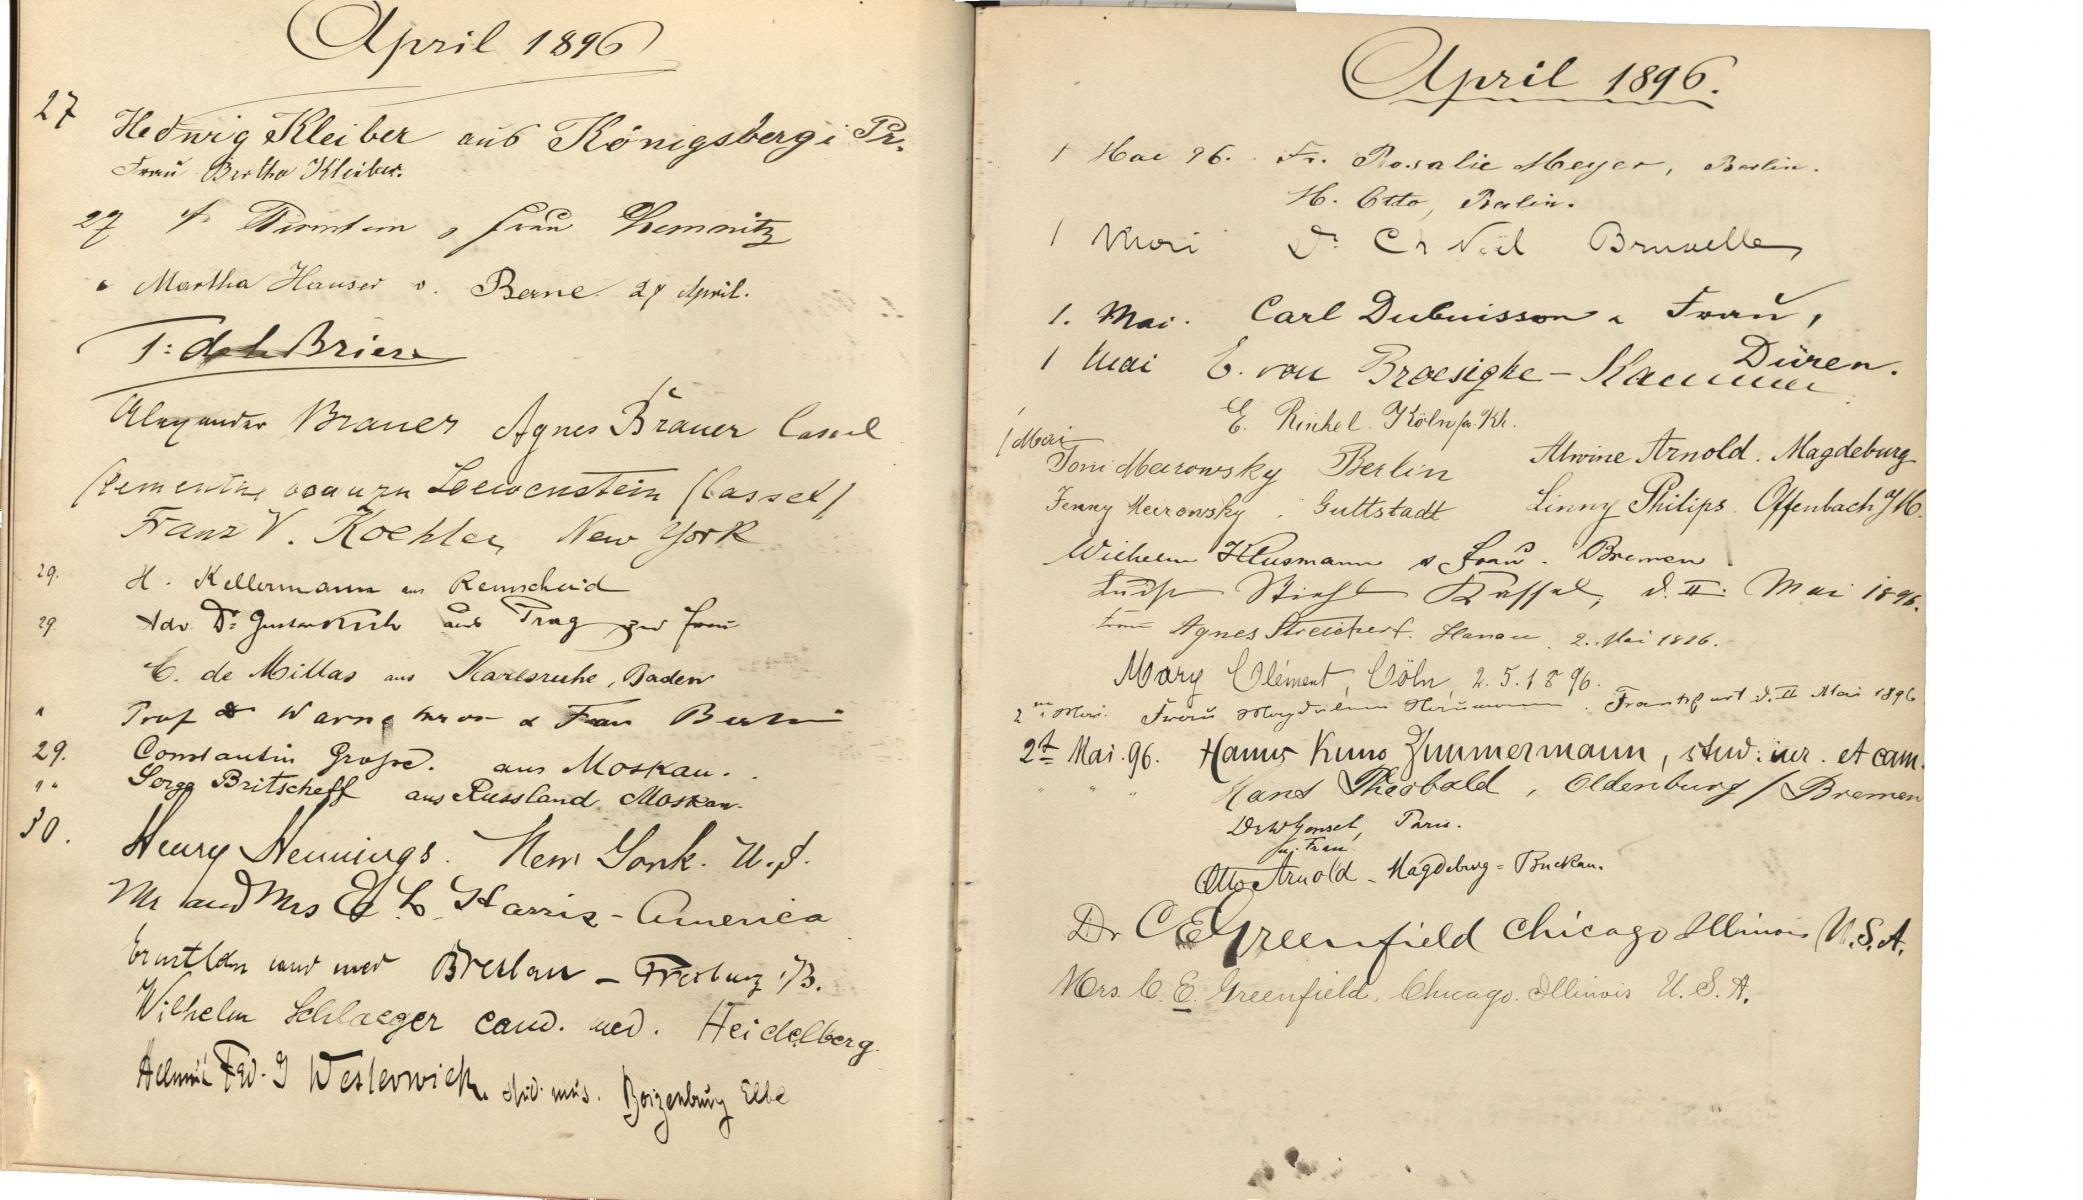 April 1896
27 Hedwig Kleiber aus Königsberg i Pr.
Frau Bertha Kleiber.
27 Frau Chemnitz
" Martha Hauser v. Berne 27 April.
de la Briere
Alexander Brauer Agnes Brauer Cassel
Clementine Loewenstein (Cassel)
Franz V. Koehler, New York
29. H. Kellermann aus Remscheid
29 Adv. Dr. Gustav aus Prag und Frau
C. de Millas aus Karlsruhe, Baden
" Prof Dr Warnekros & Frau Berlin
29. Constantin Grosse. aus Moskau.
" " Serge Britscheff aus Russland Moskau.
30. Henry Hennings. New York. U.S.
Mr and Mrs E. L. Harris - America
cand med Breslau - Freiburg i/B.
Wilhelm Schlaeger cand. med. Heidelberg.
Frd. Westerwick, stud. mus. Boizenburg Elbe
April 1896.
1 Mai 96. Fr. Rosalie Meyer, Berlin.
H. Otto, Berlin.
1 Mai Dr Ch Noël Bruxelles
1. Mai. Carl Dubuisson u Frau,
Düren.
1 Mai E. von Broesigke - Kammer
E. Rinkel. Köln a. Rh.
1 Mai
Toni Meirowsky Berlin Alwine Arnold. Magdeburg
Jenny Meirowsky. Guttstadt Linny Philips. Offenbach a/M.
Wilhelm Klusmann u Frau. Bremen
Kassel, d. II. Mai 1896.
Frau Agnes Streichert. Hanau. 2. Mai 1896.
Mary Clément, Cöln, 2.5.1896.
2ten Mai. Frau Magdalena Neumann. Frankfurt d. II Mai 1896
2t Mai. 96. Hanns Kuno Zimmermann, stud: iur. et cam.
" " " Hans Theobald, Oldenburg / Bremen
Dr W Gensel, Paris.
u. Frau.
Otto Arnold - Magdeburg = Buckau.
Dr C E Greenfield Chicago Illinois U.S.A.
Mrs. C. E. Greenfield, Chicago. Illinois U. S. A.